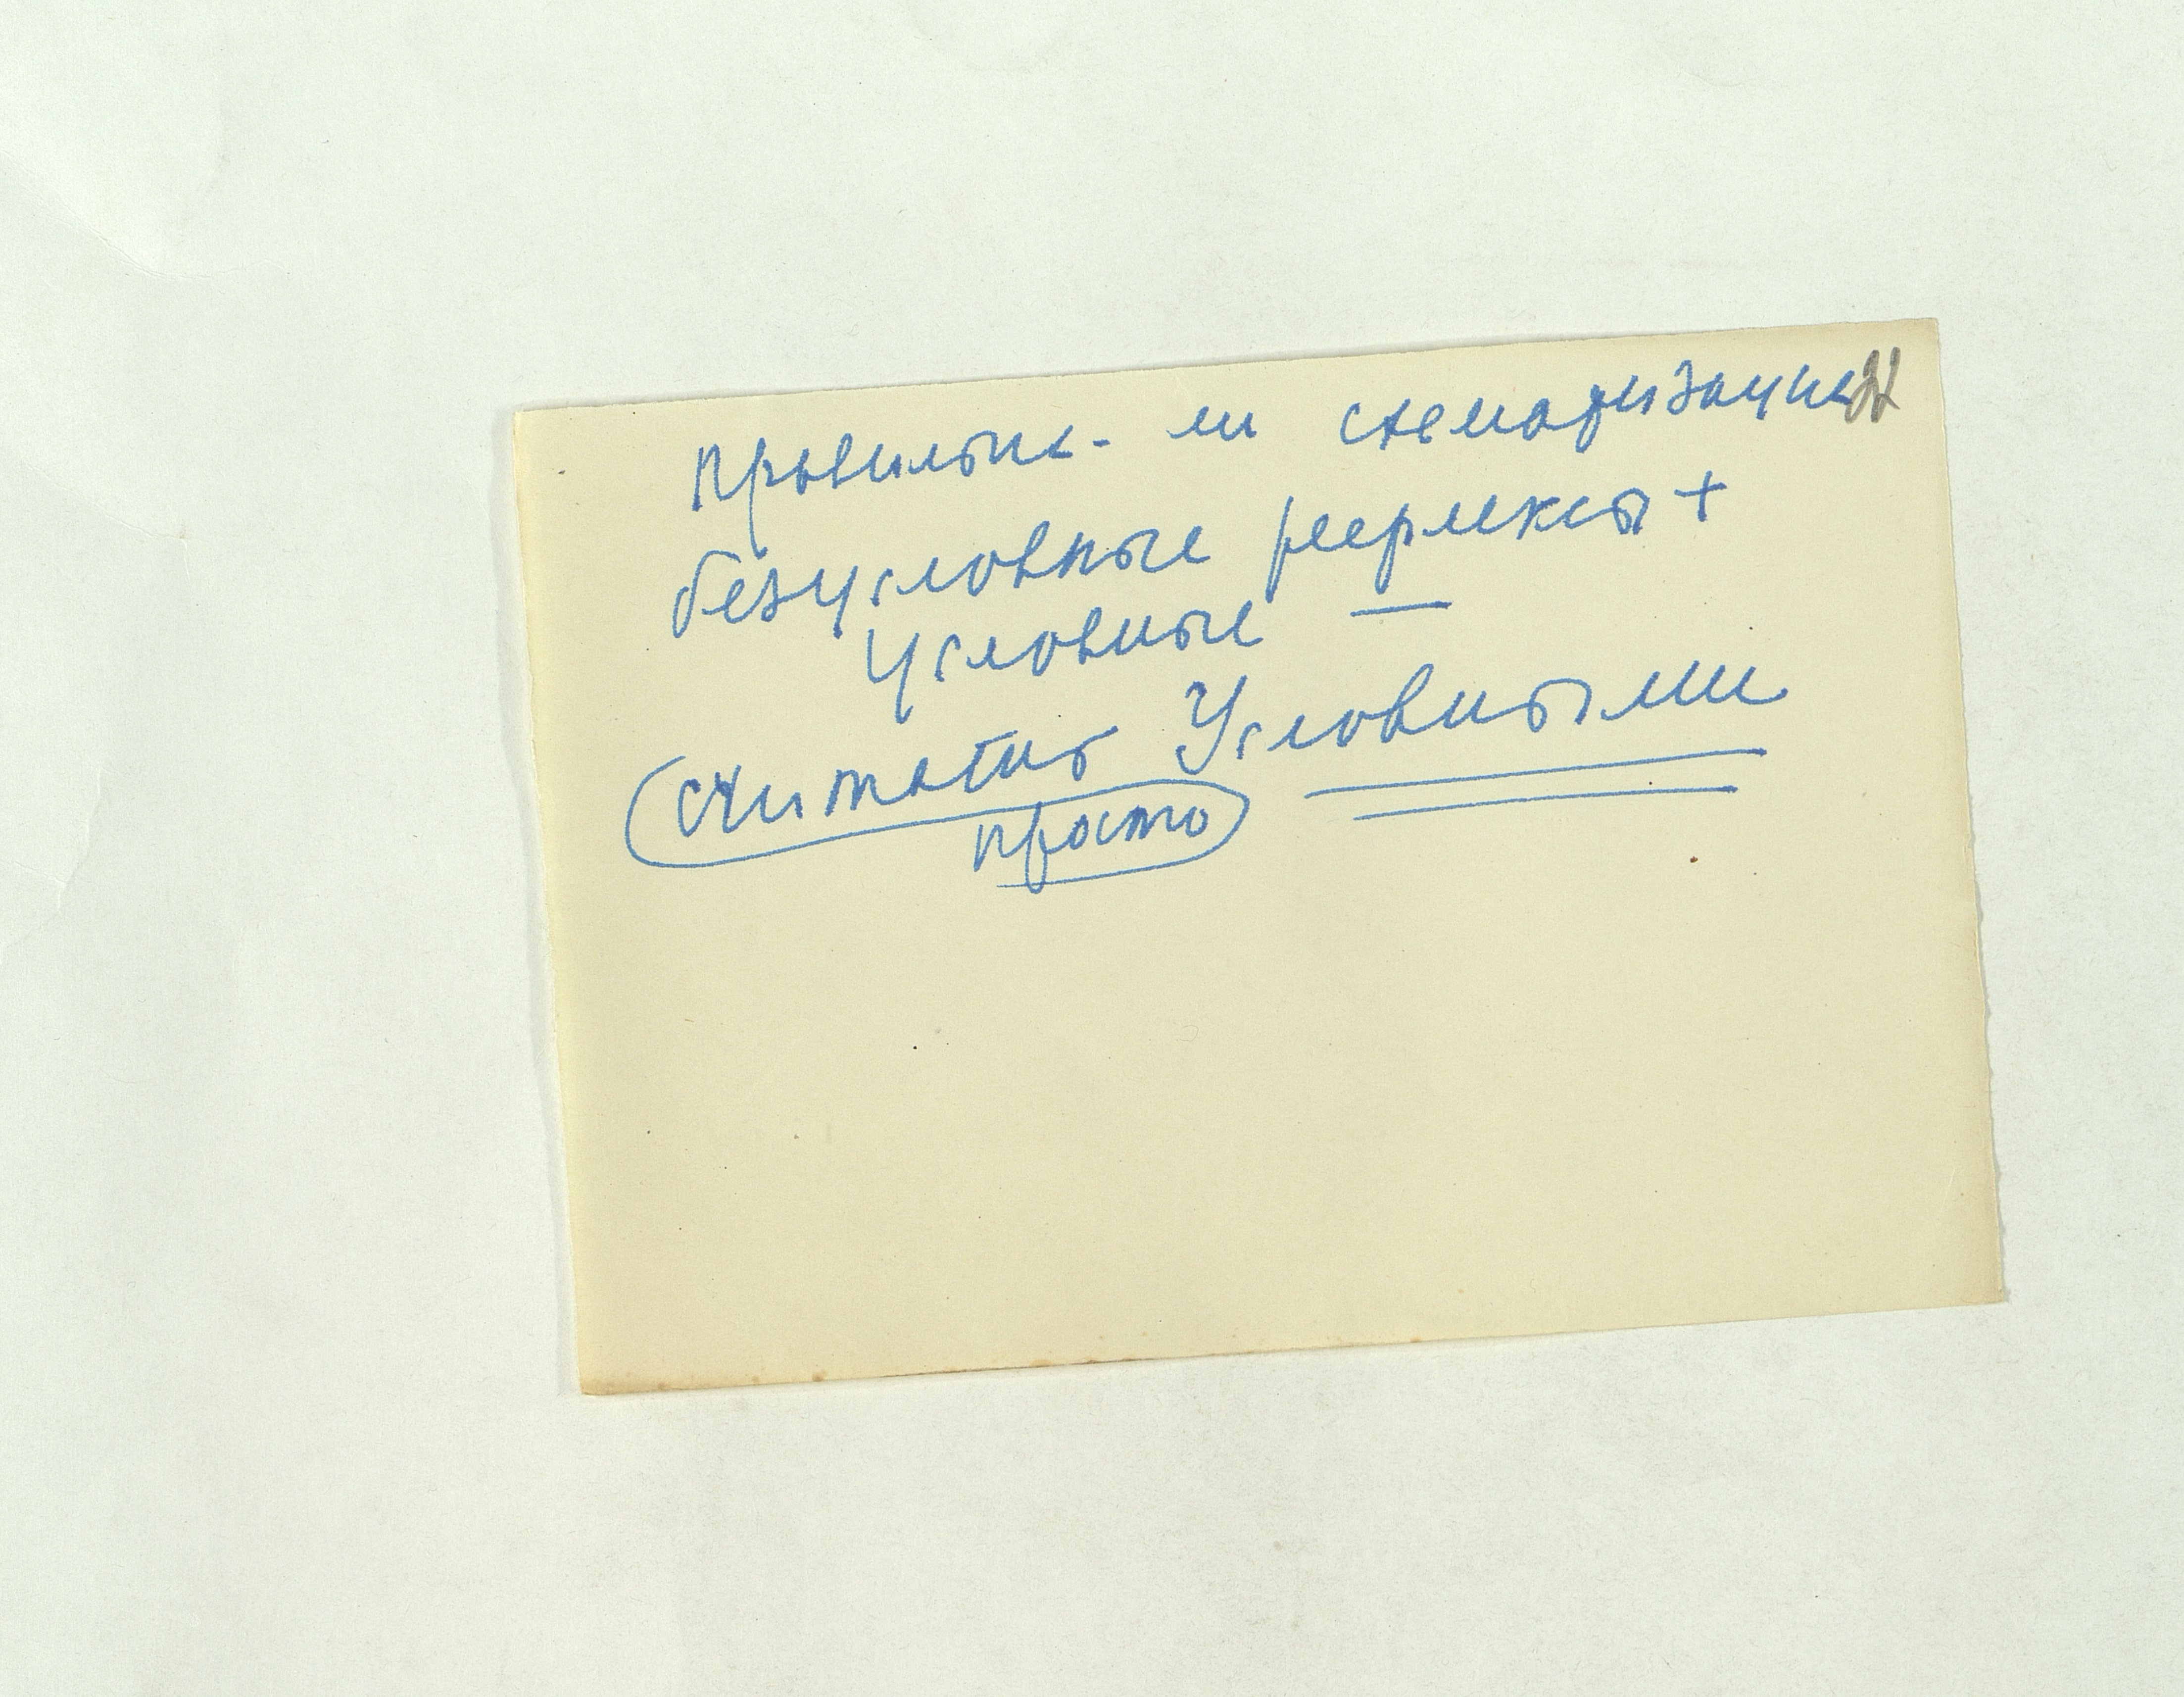 Правильна - ли схематизация
безусловные рефлексы +
условные —
Считать Условными
просто